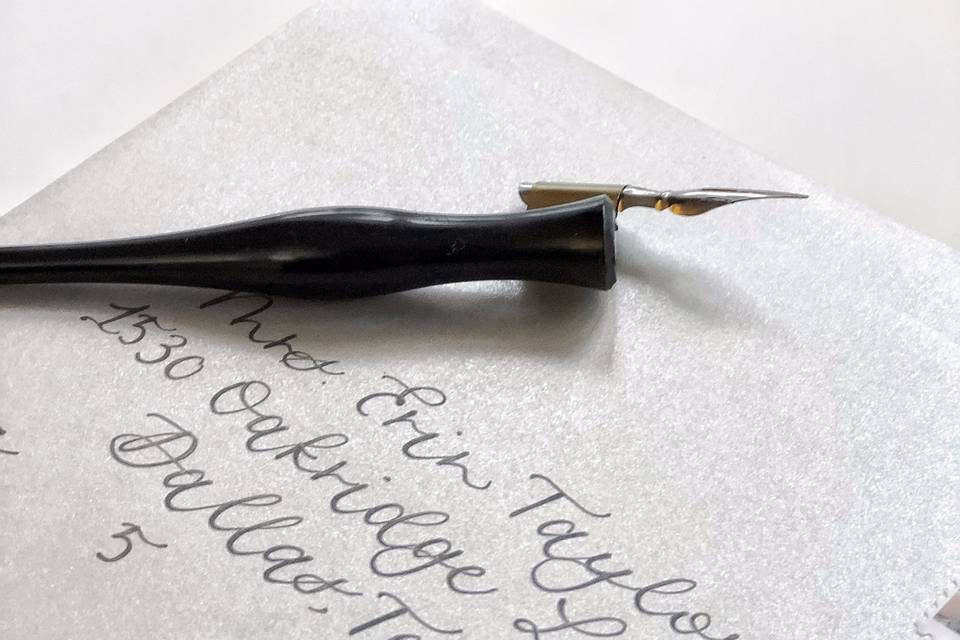 Mrs. Erin Taylo
1530 Oakridge L
Dallas, Te
5